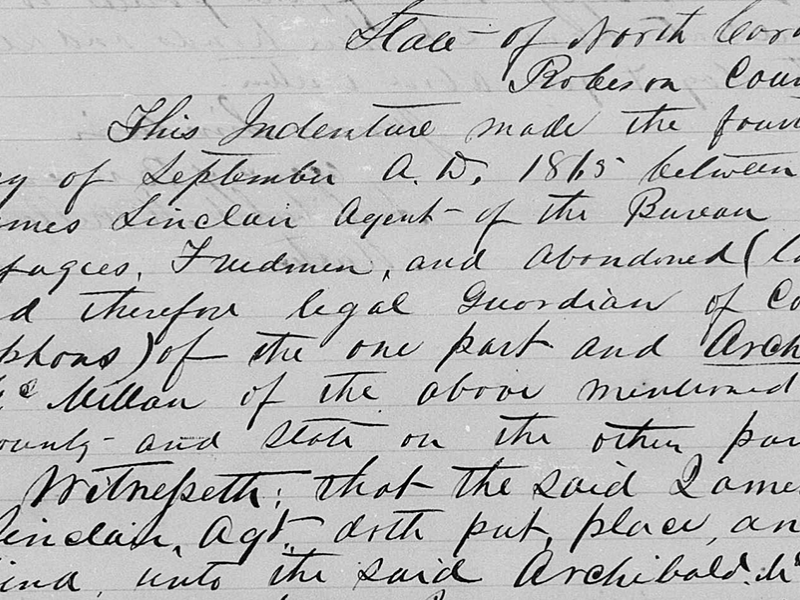 State of North Caro
Robeson Coun
This Indenture made the four
ay of September A. D. 1865 between
ames Sinclair Agent of the Bureau
fugees, Freedmen, and Abandoned (La
d therefore legal Guardian of Co
phans) of the one part and Arch
Mc Millan of the above mentioned
ounty and State on the other par
Witnesseth; that the said James
Sinclair, Agt. doth put, place, an
ind, unto the said Archibald Mc